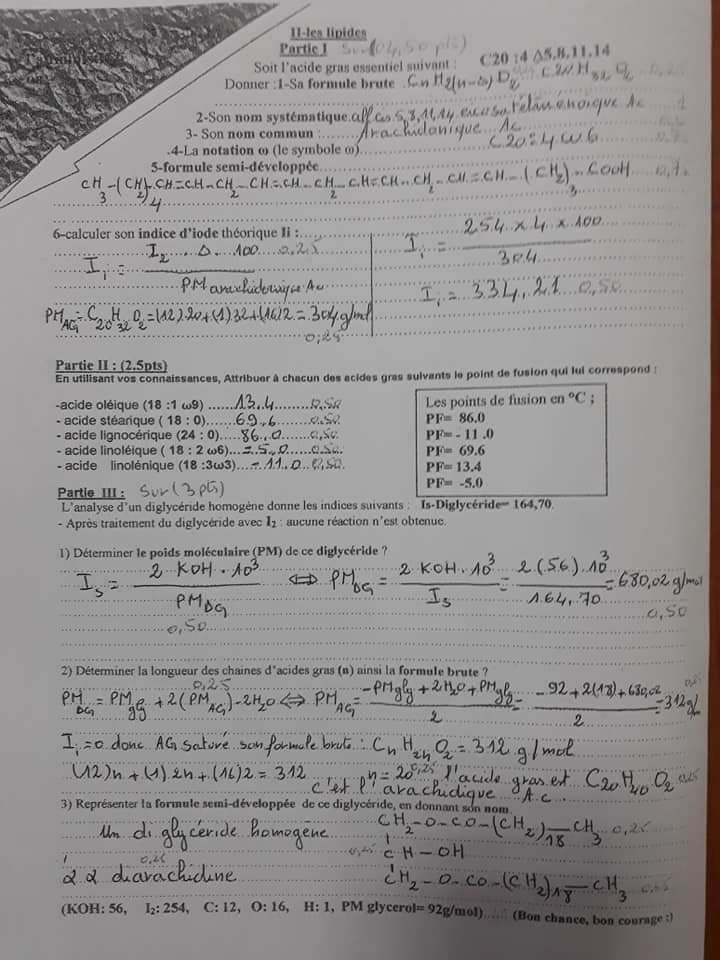 II-les lipides
Partie I Sur (04,50 pts)
Soit l'acide gras essentiel suivant : C20 :4 Δ5,8,11,14
Donner :1-Sa formule brute .CnH2(n-Δ)O2 C20H32O2 0,25
2-Son nom systématique.all cis 5,8,11,14 Ac 1
3- Son nom commun : Arachidonique Ac
.4-La notation ω (le symbole ω) C20:4 ω6
5-formule semi-développée
CH3-(CH2)4-CH=CH-CH2-CH=CH-CH2-CH=CH-CH2-CH=CH-(CH2)3-COOH
6-calculer son indice d'iode théorique Ii :
Ii = I2 . Δ . 100 / PM arachidonique Ac 0,25
PMAG = C20H32O2 = (12)20+(1)32+(16)2 = 304 g/mol
0,25
Ii = 254 x 4 x 100 / 304
Ii = 334,21 0,50
Partie II : (2.5pts)
En utilisant vos connaissances, Attribuer à chacun des acides gras suivants le point de fusion qui lui correspond :
-acide oléique (18 :1 ω9) 13,4 0,50
- acide stéarique ( 18 : 0) 69,6 0,50
- acide lignocérique (24 : 0) 86,0 0,50
- acide linoléique ( 18 : 2 ω6) -5,0 0,50
- acide linolénique (18 :3ω3) -11,0 0,50
Les points de fusion en °C ;
PF= 86.0
PF= - 11 .0
PF= 69.6
PF= 13,4
PF= -5.0
Partie III : Sur (3 pts)
L'analyse d'un diglycéride homogène donne les indices suivants : Is-Diglycéride= 164,70.
- Après traitement du diglycéride avec I2 : aucune réaction n'est obtenue.
1) Déterminer le poids moléculaire (PM) de ce diglycéride ?
Is = 2 KOH . 10³ / PMDG ⇔ PMDG = 2 KOH . 10³ / Is = 2 (56) . 10³ / 164,70 = 680,02 g/mol
0,50 0,50
2) Déterminer la longueur des chaines d'acides gras (n) ainsi la formule brute ?
0,25
PMDG = PMgly + 2(PMAG) - 2H2O ⇔ PMAG = -PMgly + 2H2O + PMgly / 2 = -92 + 2(18) + 680,02 / 2 = 312 g/
Ii = 0 donc AG saturé son formule brute : CnH2nO2 = 312 g/mol
(12)n + (1)2n + (16)2 = 312 n = 20 0,25 l'acide gras est C20H40O2 0,25
c'est l'arachidique Ac.
3) Représenter la formule semi-développée de ce diglycéride, en donnant son nom.
Un di glycéride homogène
CH2-O-CO-(CH2)18-CH3 0,25
0,25 CH-OH
CH2-O-CO-(CH2)18-CH3
0,25
diarachidine
(KOH: 56, I2: 254, C: 12, O: 16, H: 1, PM glycerol= 92g/mol) (Bon chance, bon courage :)